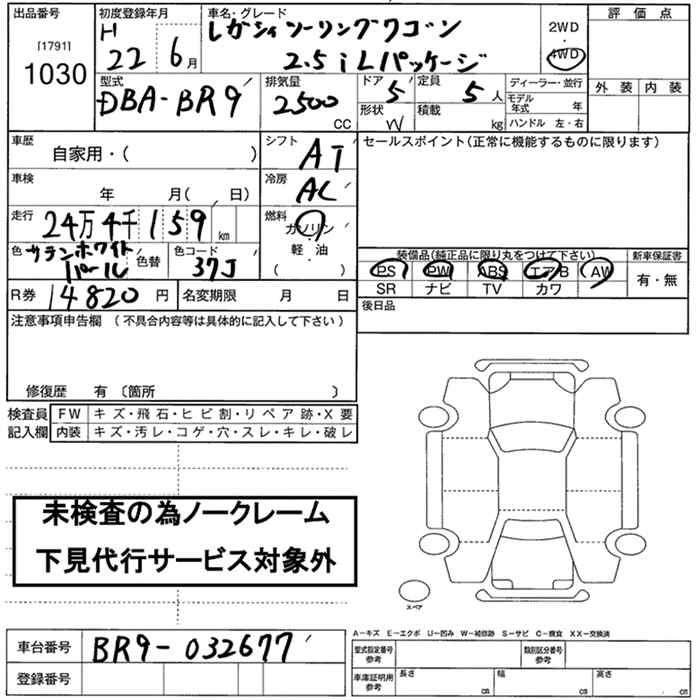 出品番号 初度登録年月 車名・グレード 評価点
[1791] H レガシィツーリングワゴン 2WD
1030 22 6月 2.5 i Lパッケージ ・4WD 外装 内装
型式 排気量 ドア 定員 ディーラー・並行
DBA-BR9 2500 CC 5 5人 モデル年式 年
形状 W 積載 kg ハンドル 左・右
車歴 シフト セールスポイント(正常に機能するものに限ります)
自家用・( ) AT
車検 冷房
年 月( 日) AC
走行 燃料
24万4千159km ガソリン
色 サテンホワイトパール 色替 色コード 37J 軽・油
( )
装備品(純正品に限り丸をつけて下さい) 新車保証書
PS PW ABS エアB AW 有・無
SR ナビ TV カワ
R券 14820円 名変期限 月 日 後日品
注意事項申告欄 (不具合内容等は具体的に記入して下さい)
修復歴 有 〔箇所 〕
検査員 FW キズ・飛石・ヒビ割・リペア跡・X要
記入欄 内装 キズ・汚レ・コゲ・穴・スレ・キレ・破レ
未検査の為ノークレーム
下見代行サービス対象外
スペア
A-キズ E-エクボ U-凹み W-補修跡 S-サビ C-腐食 XX-交換済
車台番号 BR9-032677 型式指定番号 参考 類別区分番号 参考
登録番号 車庫証明用 参考 長さ cm 幅 cm 高さ cm